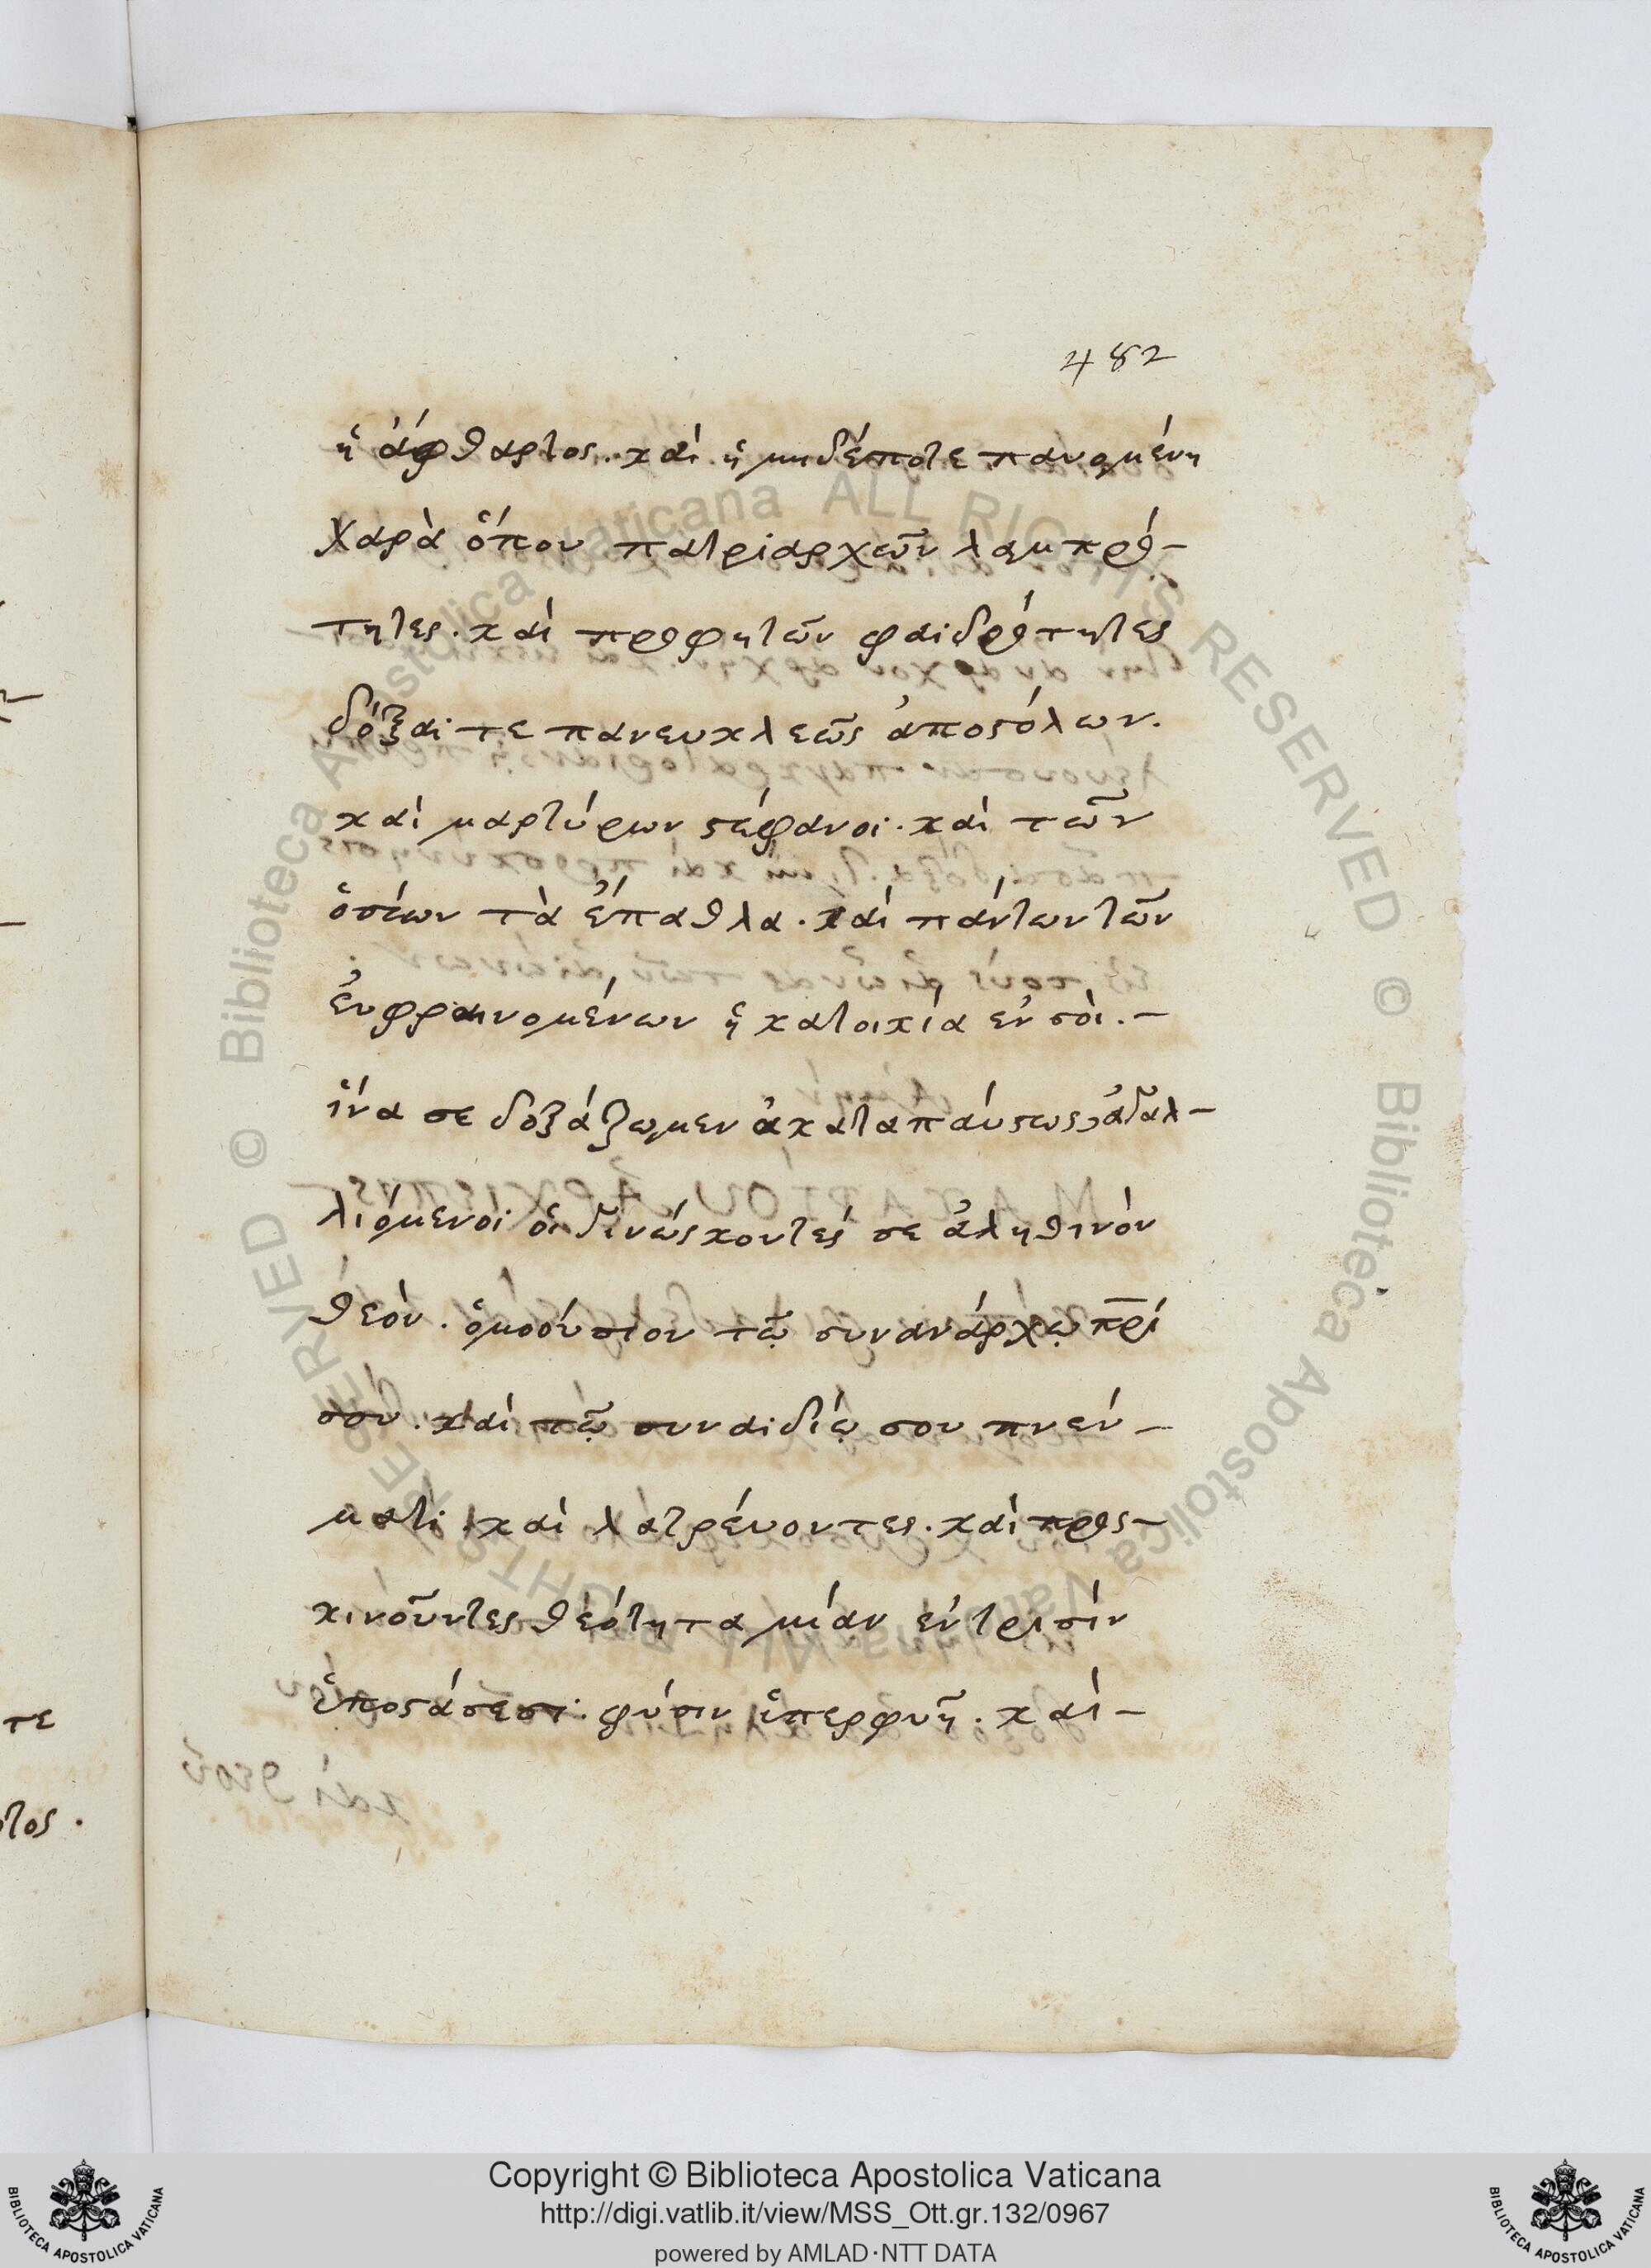 482
ἡ ἄφθαρτος. καὶ ἡ μηδέποτε παυομένη
χαρὰ ὅπου πατριαρχῶν λαμπρό-
τητες. καὶ προφητῶν φαιδρότητες
δόξαι τε πανευκλεῶς ἀποστόλων.
καὶ μαρτύρων στέφανοι. καὶ τῶν
ὁσίων τὰ ἔπαθλα. καὶ πάντων τῶν
ἐυφραινομένων ἡ κατοικία ἐν σοὶ.-
ἵνα σε δοξάζωμεν ἀκαταπαύστως, ἀγαλ-
λιόμενοι οἱ γινώσκοντές σε ἀληθινὸν
θεὸν. ὁμοούσιον τῷ συνανάρχῳ πρί
σου. καὶ τῷ συναιδίῳ σου πνεύ-
ματι. καὶ λατρέυοντες. καὶ προς-
κινοῦντες θεότητα μίαν ἐν τρισὶν
ὑποστάσεσι. φύσιν ὑπερφυῆ. καὶ-
τε
τος.
© Biblioteca Apostolica Vaticana ALL RIGHTS RESERVED
© Biblioteca Apostolica Vaticana ALL RIGHTS RESERVED
Copyright © Biblioteca Apostolica Vaticana
http://digi.vatlib.it/view/MSS_Ott.gr.132/0967
powered by AMLAD·NTT DATA
BIBLIOTECA APOSTOLICA VATICANA
BIBLIOTECA APOSTOLICA VATICANA